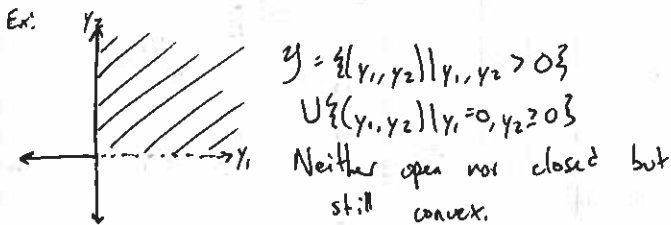 Ex:
y₂
𝒴 = {(y₁, y₂) | y₁, y₂ > 0}
∪ {(y₁, y₂) | y₁ = 0, y₂ ≥ 0}
y₁
Neither open nor closed but
still convex.